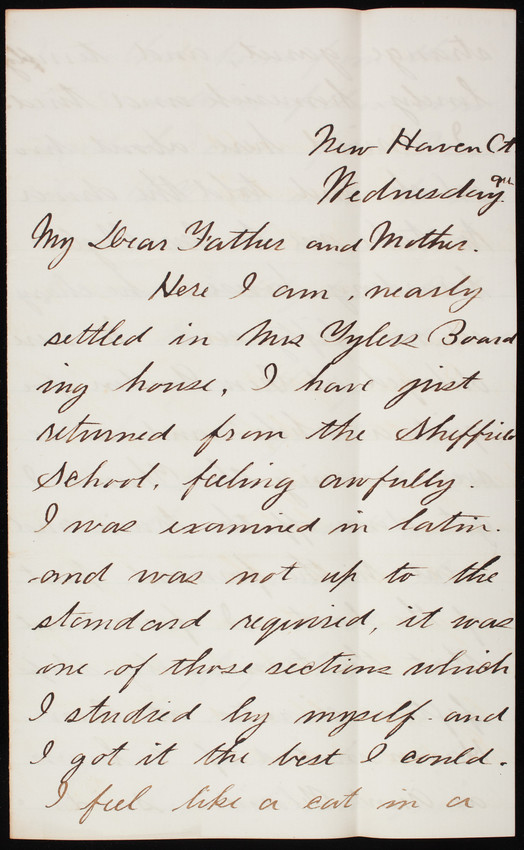 New Haven Ct
Wednesday
My Dear Father and Mother.
Here I am, nearly
settled in Mrs Tylers Board
ing house, I have just
returned from the Sheffield
School, feeling awfully.
I was examined in latin.
and was not up to the
standard required, it was
one of those sections which
I studied by myself. and
I got it the best I could.
I feel like a cat in a